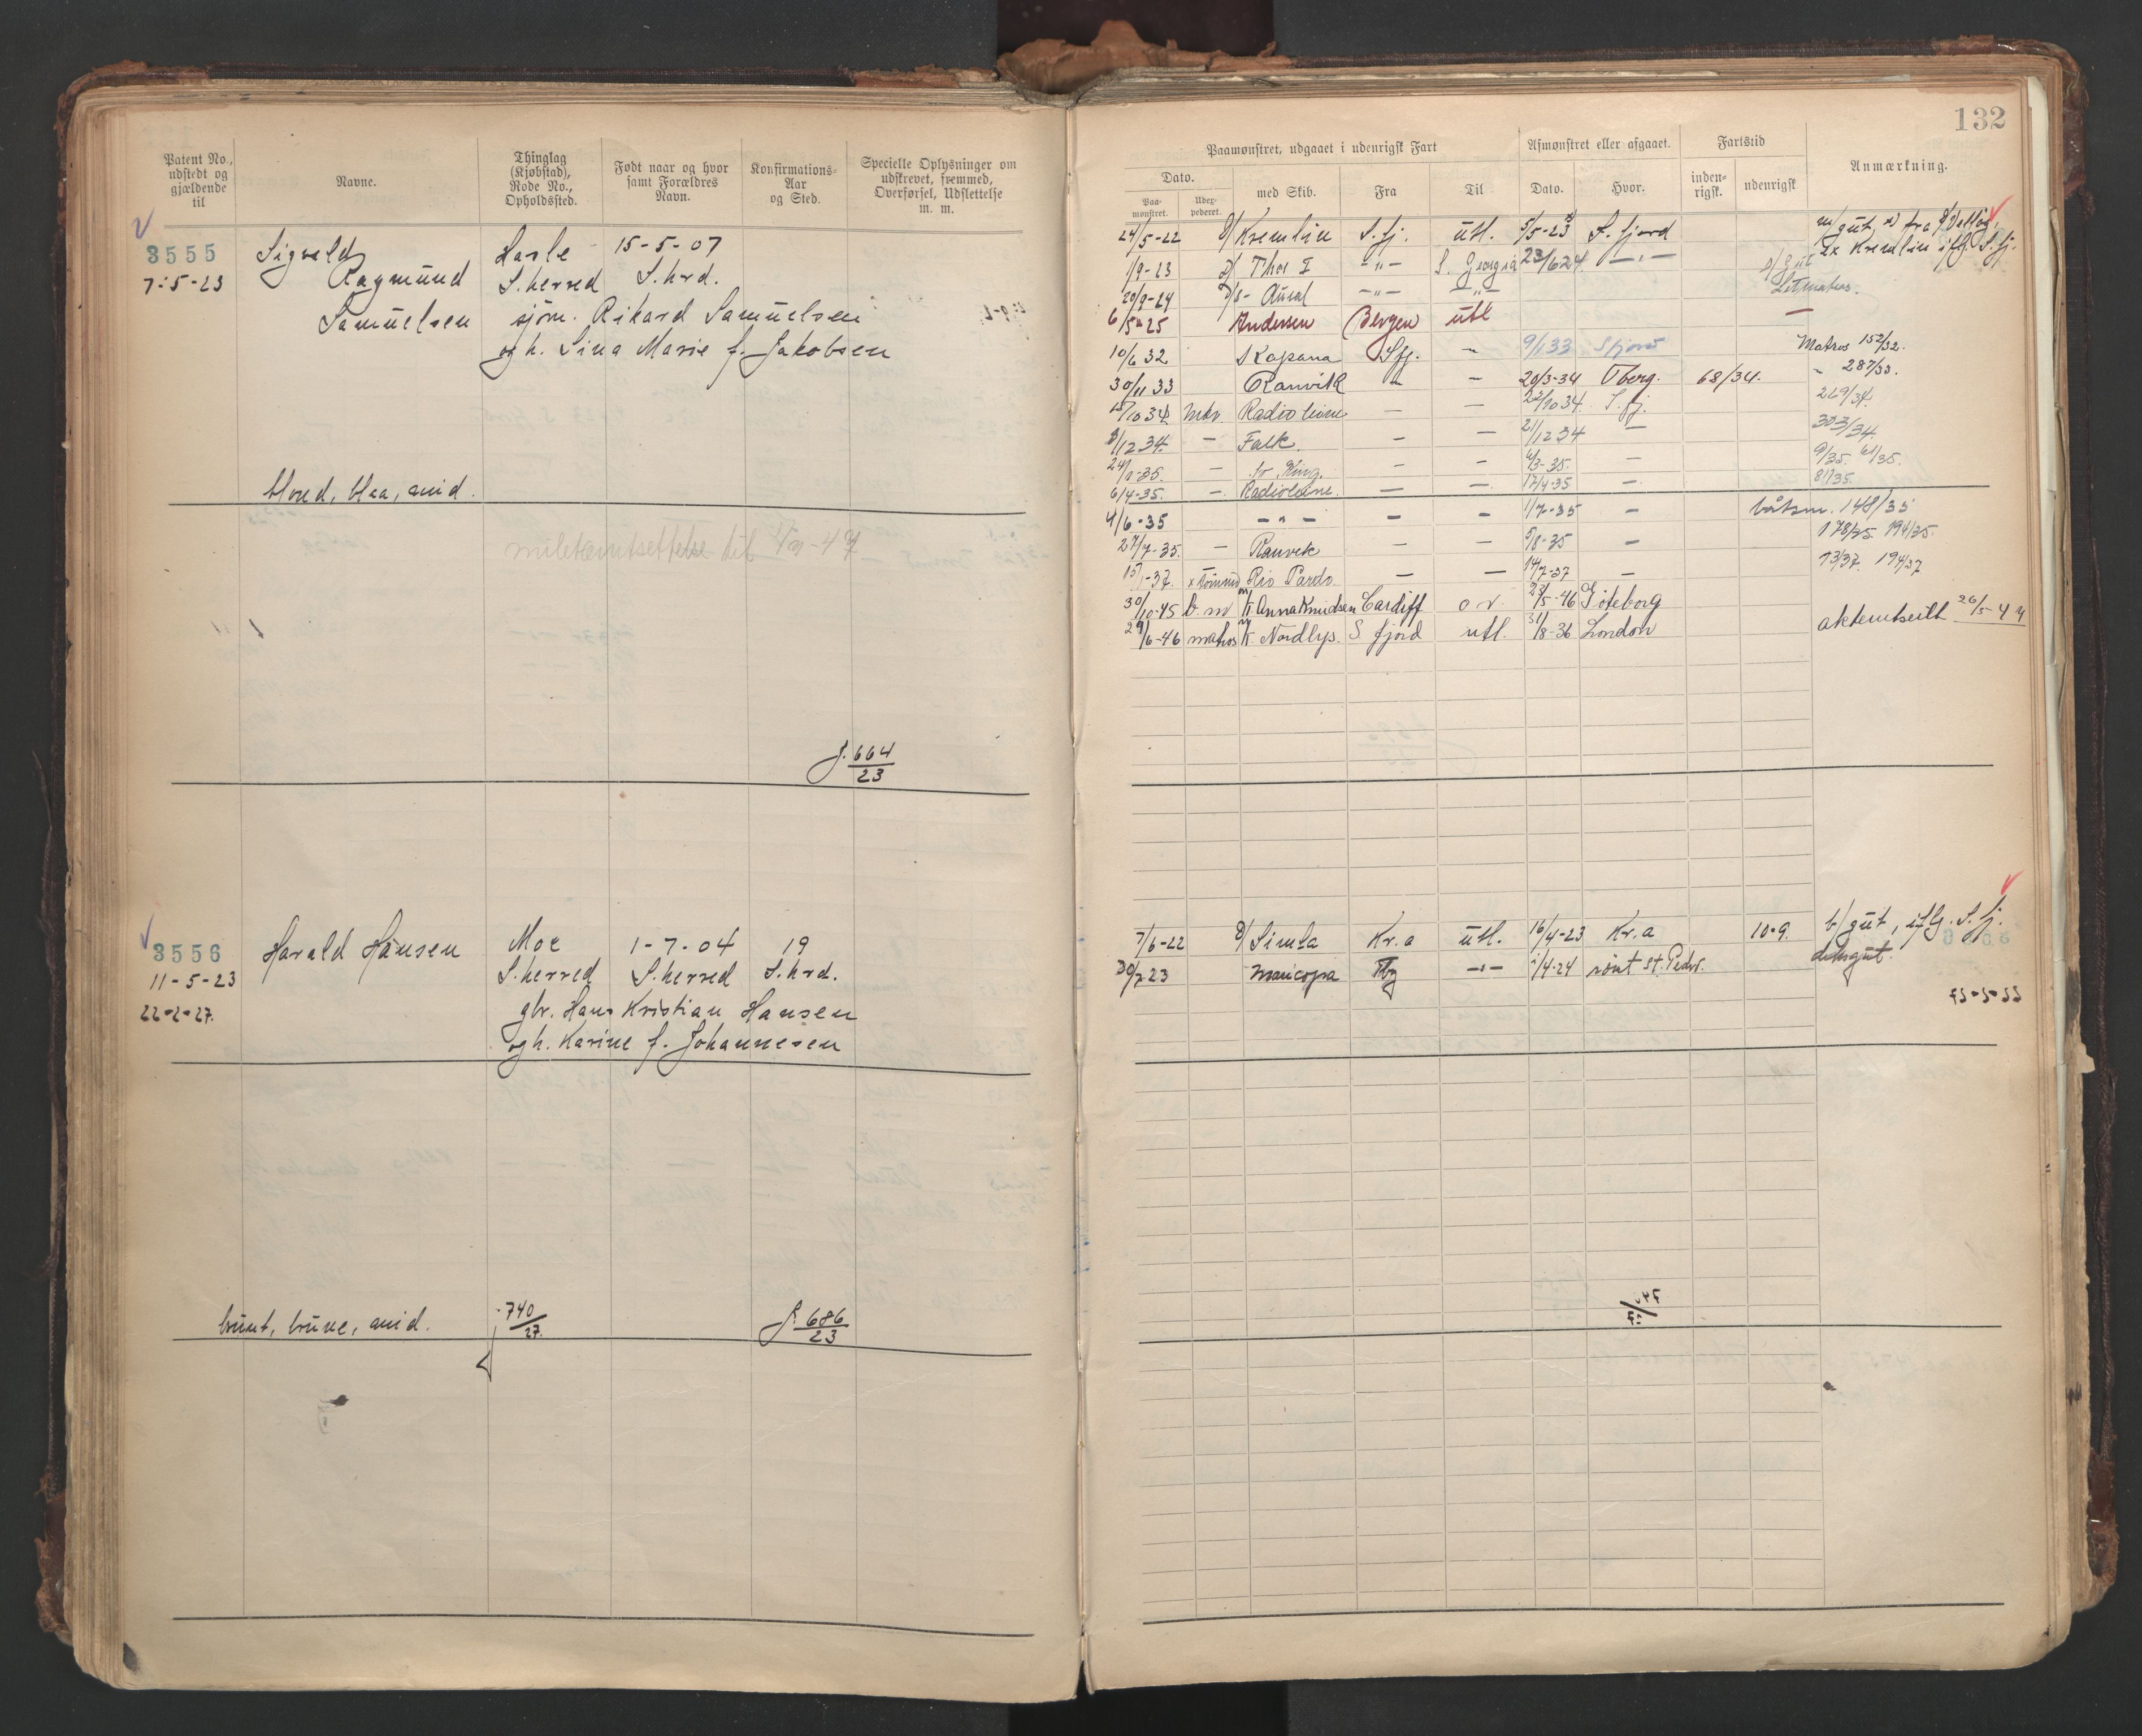 132
Patent No., udstedt og gjældende til
Navne.
Thinglag (Kjøbstad), Rode No., Opholdssted.
Født naar og hvor samt Forældres Navn.
Konfirmations-Aar og Sted.
Specielle Oplysninger om udskrevet, fremmed, Overførsel, Udslettelse m. m.
3555 Sigvald Hasle 15-5-07
7-5-23 Ragmund S.herred S.hrd.
Samuelsen sjøm. Rikard Samuelsen
og h. Lina Marie f. Jakobsen
blond, blaa, mid.
J. 664/23
3556 Harald Hansen Moe 1-7-04 19
11-5-23 S.herred S.herred S.hrd.
22-2-27. gbr. Hans Kristian Hansen
og h. Karine f. Johannesen
brunt, brune, mid. 740/27. J. 686/23
Paamønstret, udgaaet i udenrigsk Fart
Afmønstret eller afgaaet.
Fartstid
Anmærkning.
Dato.
med Skib.
Fra
Til
Dato.
Hvor.
inden-rigsk.
udenrigsk
Paa-mønstret.
Uder-pederet.
24/5-22 Kremlin S.fj. utl. 5/5-23 S.fjord
1/9-23 Thor I -"- S. Georgia 23/6 24 -"-
20/9-24 Aural -"- -"- Letmatros.
6/5-25 Andersen Bergen utl —
10/6 32 Skapana Sfj. - 9/1 33 Sfjord Matros 152/32.
30/11 33 Ranvik - - 20/3-34 Tberg. 68/34. - 287/33.
15/10 34 Radioleine — — 22/10 34 S.fj. 269/34.
8/12 34. — Falk. — — 21/12 34 — 303/34.
24/1-35. — King. — — 4/3-35. — 9/35. 61/35.
6/4-35. — Radioleine. — — 17/4-35 — 81/35.
4/6-35 -"- — — 1/7-35 — båtsm. 148/35
27/7-35. — Ranvik — — 5/8-35 — 178/35. 194/35.
15/1-37. Rio Pardo — — 14/7-37 — 13/37. 194/37
30/10-45 b.m Anna Knudsen Cardiff o.v. 23/5-46 Göteborg
29/6-46 matros Nordlys. S fjord utl. 31/8-36 London
7/6-22 Simla Kr.a utl. 16/4-23 Kr.a 10-9. b/gut, iflg. S.fj.
30/7 23 Maricopa Tbg -"- 1/4-24 rømt St. Pedro. deksgut.